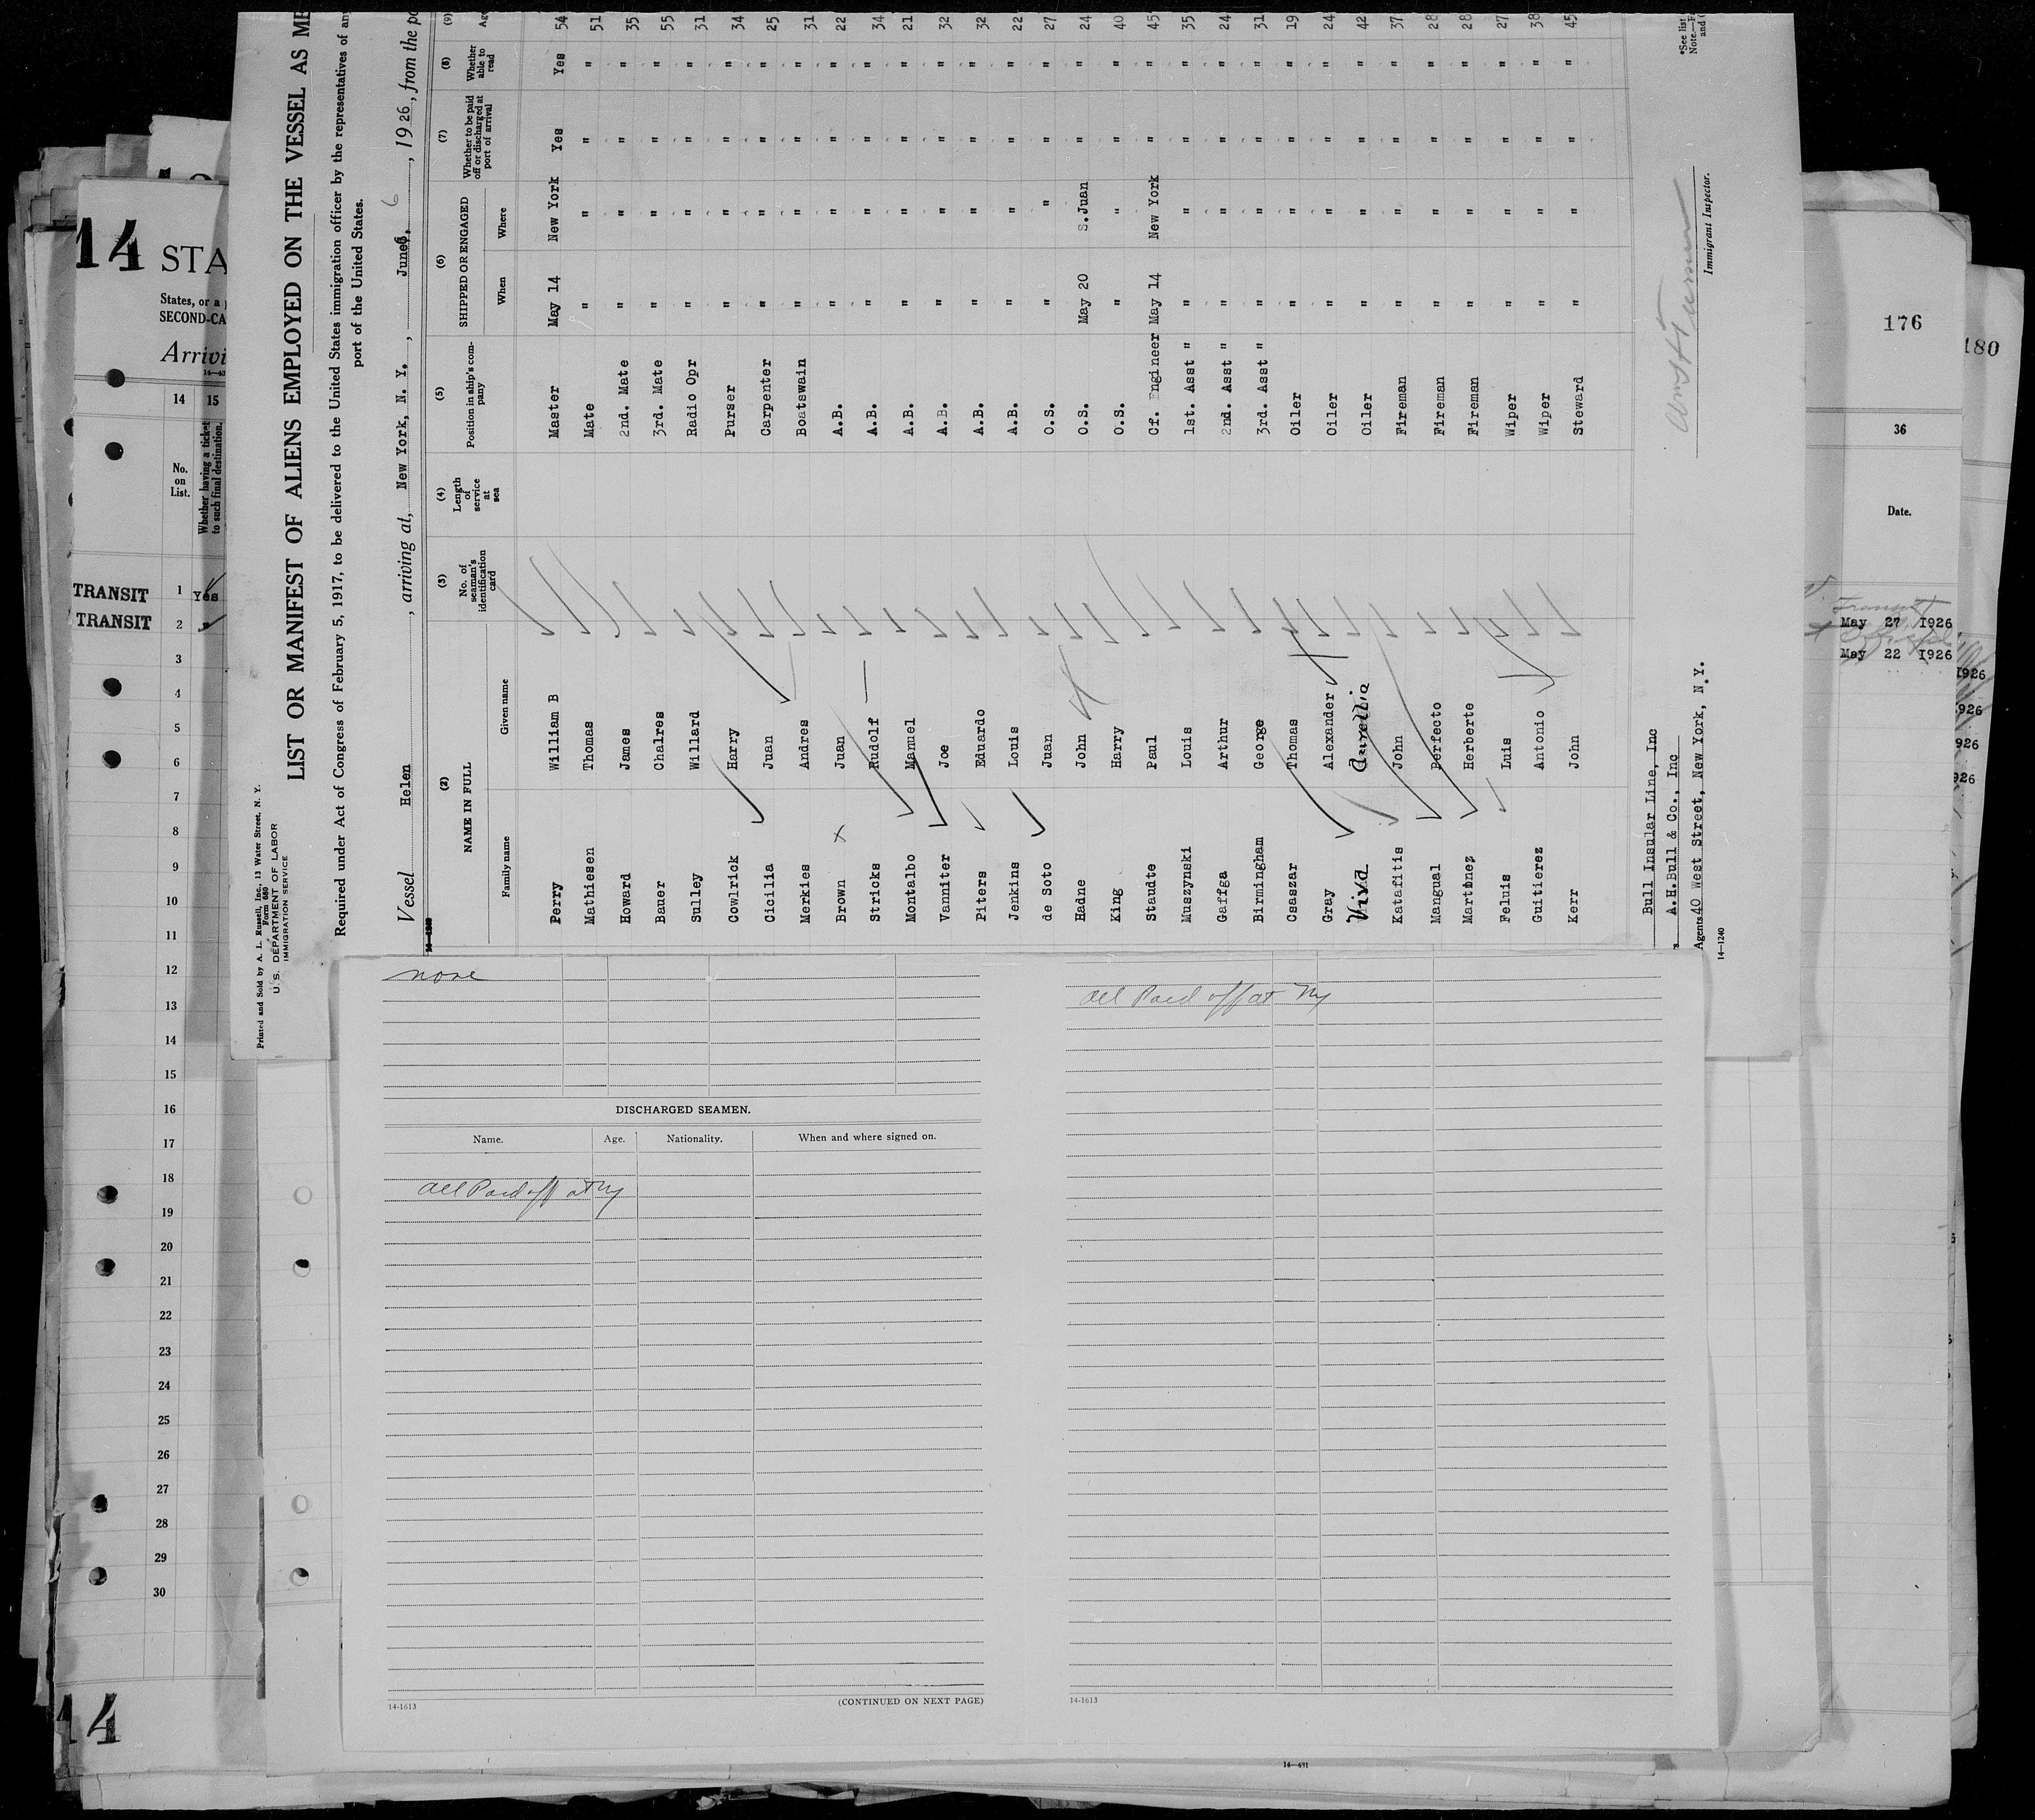 Printed and Sold by A. L. Russell, Inc., 13 Water Street, N. Y.
Form 680
U. S. DEPARTMENT OF LABOR
IMMIGRATION SERVICE
LIST OR MANIFEST OF ALIENS EMPLOYED ON THE VESSEL AS ME
Required under Act of Congress of February 5, 1917, to be delivered to the United States immigration officer by the representatives of any
port of the United States.
Vessel Helen, arriving at, New York, N. Y., June 6, 1926, from the po
(2) (3) (4) (5) (6) (7) (8) (9)
NAME IN FULL No. of seaman's identification card Length of service at sea Position in ship's company SHIPPED OR ENGAGED Whether to be paid off or discharged at port of arrival Whether able to read Ag
Family name Given name When Where
Perry William B Master May 14 New York Yes Yes 54
Mathiesen Thomas Mate " " " " 51
Howard James 2nd. Mate " " " " 35
Bauer Chalres 3rd. Mate " " " " 55
Sulley Willard Radio Opr " " " " 31
Cowlrick Harry Purser " " " " 34
Cicilia Juan Carpenter " " " " 25
Merkies Andres Boatswain " " " " 31
Brown Juan A.B. " " " " 22
Stricks Rudolf A.B. " " " " 34
Montalbo Manuel A.B. " " " " 21
Vanniter Joe A.B. " " " " 32
Piters Eduardo A.B. " " " " 32
Jenkins Louis A.B. " " " " 22
de Soto Juan O.S. " " " " 27
Hadne John O.S. May 20 S.Juan " " 24
King Harry O.S. " " " " 40
Staudte Paul Cf. Engineer May 14 New York " " 45
Muszynski Louis 1st. Asst " " " " " 35
Gaffga Arthur 2nd. Asst " " " " " 24
Birmingham George 3rd. Asst " " " " " 31
Csaszar Thomas Oiler " " " " 19
Gray Alexander Oiler " " " " 24
Viva Aurellio Oiler " " " " 42
Katafitis John Fireman " " " " 37
Mangual Perfecto Fireman " " " " 28
Martinez Herberte Fireman " " " " 28
Feluis Luis Wiper " " " " 27
Guitierez Antonio Wiper " " " " 38
Kerr John Steward " " " " 45
Bull Insular Line, Inc
A.H.Bull & Co., Inc
Agents 40 West Street, New York, N.Y.
14—1240
Immigrant Inspector.
*See list
Note.—F
and
none
DISCHARGED SEAMEN.
Name. Age. Nationality. When and where signed on.
All Paid off at Ny
14-1613 (CONTINUED ON NEXT PAGE)
All Paid off at Ny
14-1613
14—431
14 STA
States, or a
SECOND-CA
Arrivi
14 15
No. on List. Whether having a ticket to such final destination.
TRANSIT 1 Yes
TRANSIT 2
3
4
5
6
7
8
9
10
11
12
13
14
15
16
17
18
19
20
21
22
23
24
25
26
27
28
29
30
14
176
180
36
Date.
Transit
May 27 1926
May 22 1926
1926
926
926
926